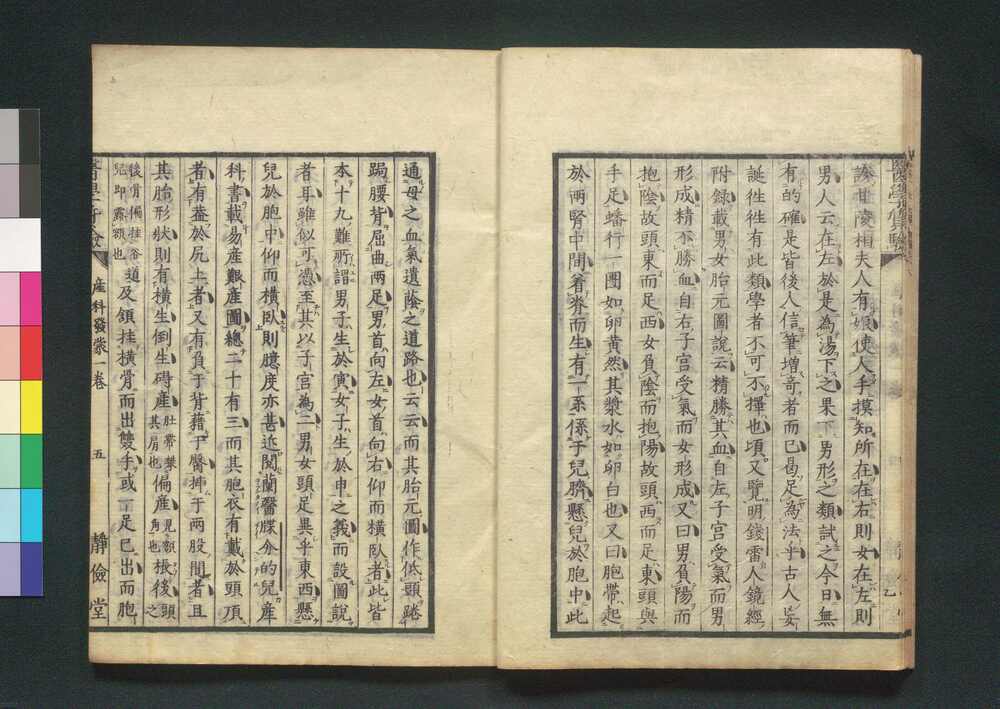 診甘陵相夫人有娠使人手摸知所在在右則女在左則
男人云在左於是為湯下之果下男形之類試之今日無
有的確是皆後人信筆增奇者而已曷足為法乎古人妄
誕徃徃有此類學者不可不擇也頃又覽明錢雷人鏡經
附錄載男女胎元圖說云精勝其血自左子宮受氣而男
形成精不勝血自右子宮受氣而女形成又曰男負陽而
抱陰故頭東而足西女負陰而抱陽故頭西而足東頭與
手足蟠行一團如卵黃然其漿水如卵白也又曰胞帶起
於兩腎中間着脊而生有一系係子兒臍懸兒於胞中此
通母之血氣遺蔭之道路也云云而其胎元圖作低頭踡
跼腰背屈曲兩足男首向左女首向右仰而橫臥者此皆
本十九難所謂男子生於寅女子生於申之義而設圖說
者耳雖似可憑至其以子宮為二男女頭足異乎東西懸
兒於胞中仰而橫臥則臆度亦甚近閱蘭醫牒分的兒產
科書載易產艱產圖總二十有三而其胞衣有戴於頭頂
者有蓋於尻上者又有負于背藉于臀挿于兩股間者且
其胎形狀則有橫生倒生碍產肚帶攀其肩也偏產見額角也棖後頭之
後骨楣挂谷道兒即露額也及領挂橫骨而出雙手或一足已出而胞
產科發蒙一卷
五
靜儉堂